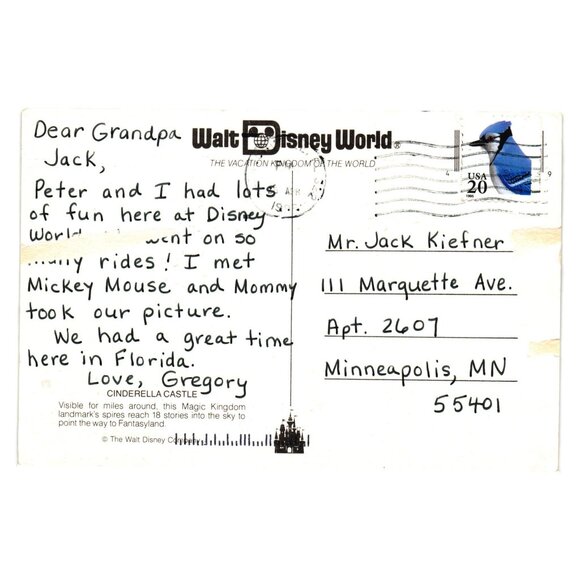 Dear Grandpa
Jack,
Peter and I had lots
of fun here at Disney
World. on so
rides! I met
Mickey Mouse and Mommy
took our picture.
We had a great time
here in Florida.
Love, Gregory
CINDERELLA CASTLE
Visible for miles around, this Magic Kingdom
landmark's spires reach 18 stories into the sky to
point the way to Fantasyland.
© The Walt Disney Company
Walt Disney World®
THE VACATION KINGDOM OF THE WORLD
PM
APR
19
USA
20
Mr. Jack Kiefner
111 Marquette Ave.
Apt. 2607
Minneapolis, MN
55401